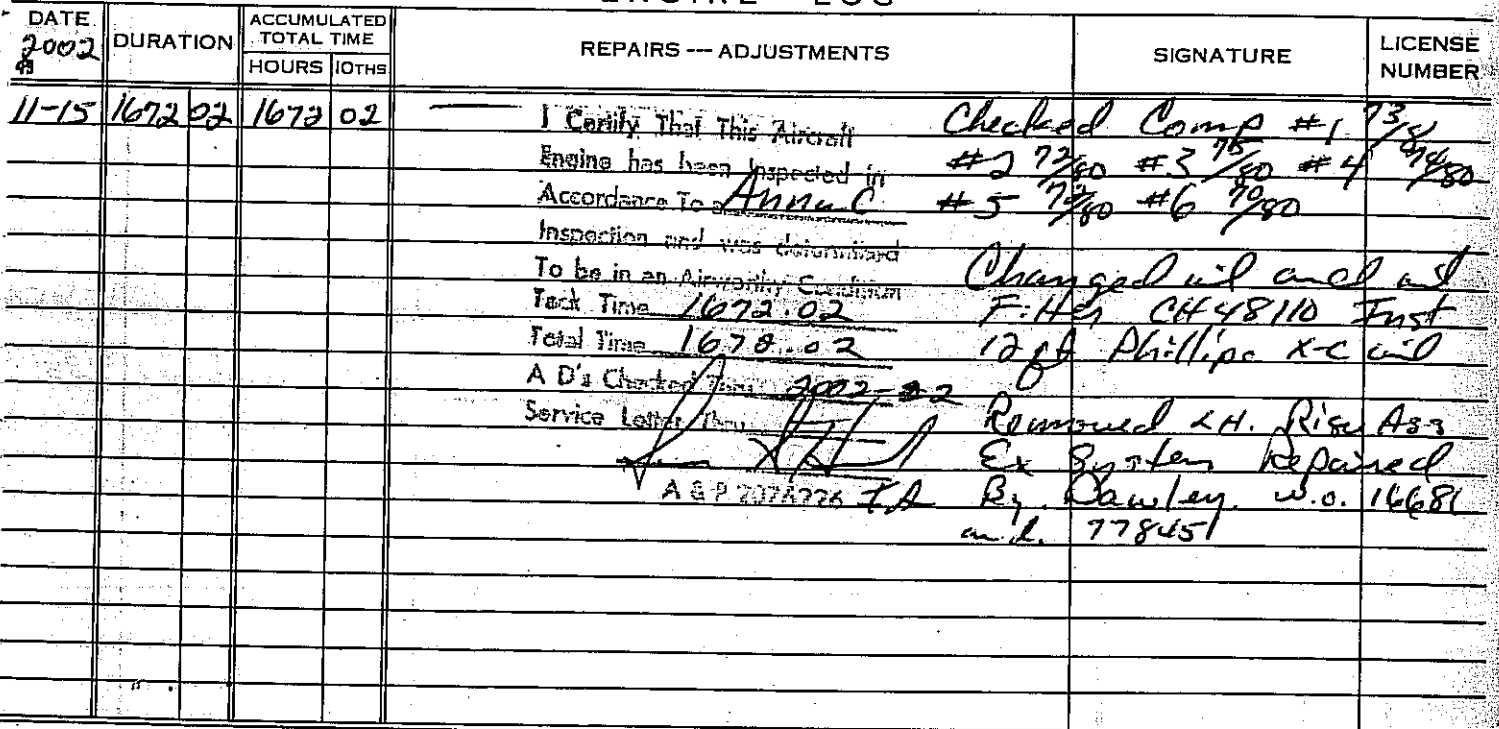 ENGINE LOG
DATE 2002 DURATION ACCUMULATED TOTAL TIME HOURS 10THS REPAIRS --- ADJUSTMENTS SIGNATURE LICENSE NUMBER
11-15 1672 02 1672 02
I Certify That This Aircraft
Engine has been Inspected in
Accordance To a Annual
Inspection and was determined
To be in an Airworthy Condition
Tack Time 1672.02
Total Time 1672.02
A D's Checked Thru 2002-22
Service Letter Thru
A & P 2076226 IA
Checked Comp #1 73/80
#2 72/80 #3 75/80 #4 74/80
#5 72/80 #6 70/80
Changed oil and oil
Filter CH48110 Inst
12 qt Phillips X-C oil
Removed LH. Riser Ass
Ex System Repaired
By. Dawley. w.o. 16681
778451